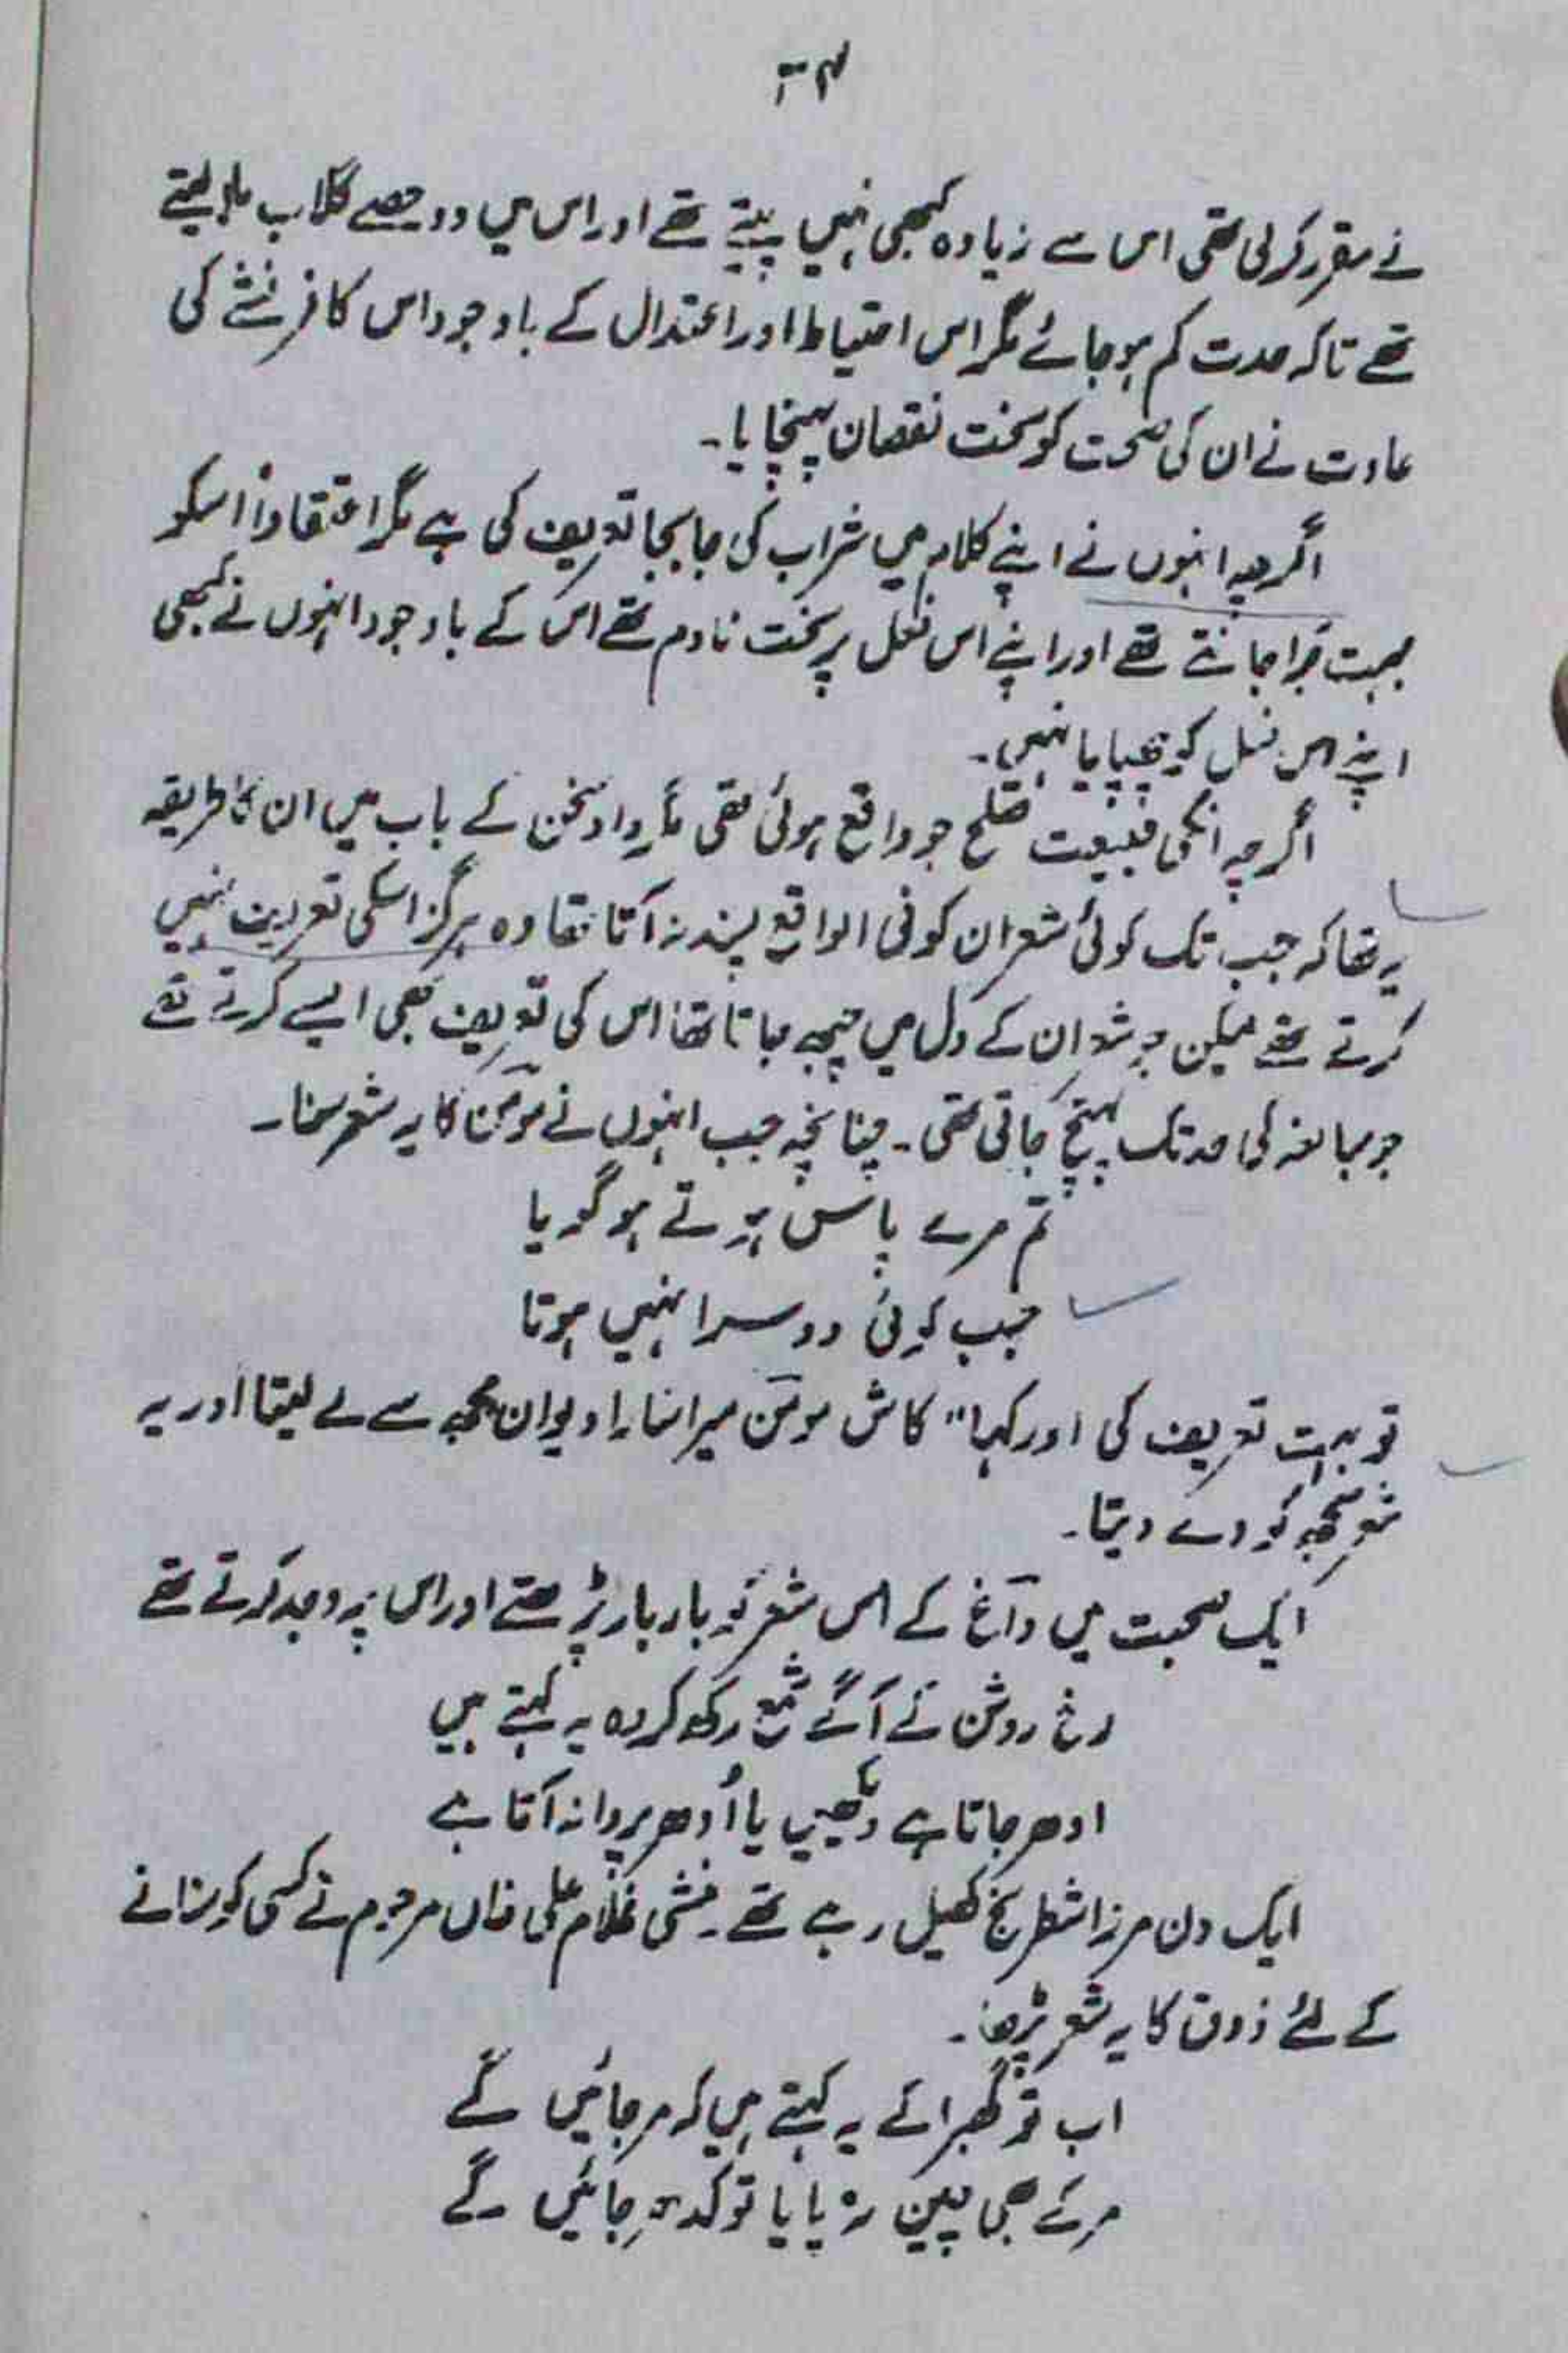 نے مقرر کرلی تھی اس سے زیادہ کبھی نہیں پیتے تھے اور اس میں دو حصے گلاب ملا لیتے
تھے تاکہ حدت کم ہوجائے مگر اس احتیاط اور اعتدال کے باوجود اس کافر نشے کی
عادت نے ان کی صحت کو سخت نقصان پہنچایا۔
اگرچہ انہوں نے اپنے کلام میں شراب کی جابجا تعریف کی ہے مگر اعتقاداً اسکو
بہت بُرا جانتے تھے اور اپنے اس فعل پر سخت نادم تھے اس کے باوجود انہوں نے کبھی
اپنے اس فعل کو چھپایا نہیں۔
اگرچہ انکی طبیعت صلح جو واقع ہوئی تھی مگر داد سخن کے باب میں ان کا طریقہ
یہ تھا کہ جب تک کوئی شعر ان کو فی الواقع پسند نہ آتا تھا وہ ہرگز اسکی تعریف نہیں
کرتے تھے لیکن جو شعر ان کے دل میں چبھ جاتا تھا اس کی تعریف بھی ایسے کرتے تھے
جو مبالغہ کی حد تک پہنچ جاتی تھی۔ چنانچہ جب انہوں نے مومنؔ کا یہ شعر سنا۔
تم مرے پاس ہوتے ہو گویا
جب کوئی دوسرا نہیں ہوتا
تو بہت تعریف کی اور کہا" کاش مومنؔ میرا سارا دیوان مجھ سے لے لیتا اور یہ
شعر مجھ کو دے دیتا۔
ایک صحبت میں داغؔ کے اس شعر کو بار بار پڑھتے اور اس پہ وجد کرتے تھے
رخ روشن کے آگے شمع رکھ کر وہ یہ کہتے ہیں
ادھر جاتا ہے دیکھیں یا اُدھر پروانہ آتا ہے
ایک دن مرزا شطرنج کھیل رہے تھے۔ منشی غلام علی خاں مرحوم نے کسی کو سنانے
کے لئے ذوق کا یہ شعر پڑھا۔
اب تو گھبرا کے یہ کہتے ہیں کہ مر جائیں گے
مر کے بھی چین نہ پایا تو کدھر جائیں گے